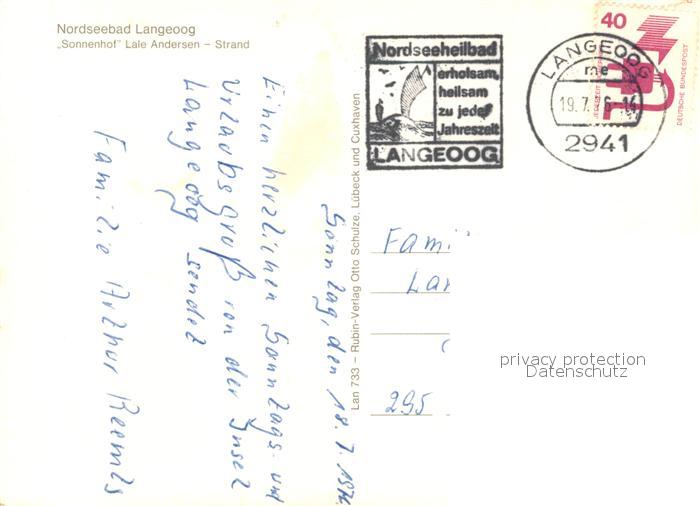 Nordseebad Langeoog
„Sonnenhof“ Lale Andersen – Strand
Nordseeheilbad
erholsam,
heilsam
zu jeder
Jahreszeit
LANGEOOG
LANGEOOG
me
19.7.76-16
2941
40
DEUTSCHE BUNDESPOST
Sonntag, den 18.7.1976
Einen herzlichen Sonntags- und
Urlaubsgruß von der Insel
Langeoog sendet
Familie Arthur Reemts
Lan 733 – Rubin-Verlag Otto Schulze, Lübeck und Cuxhaven
Fami
Lar
295
privacy protection
Datenschutz